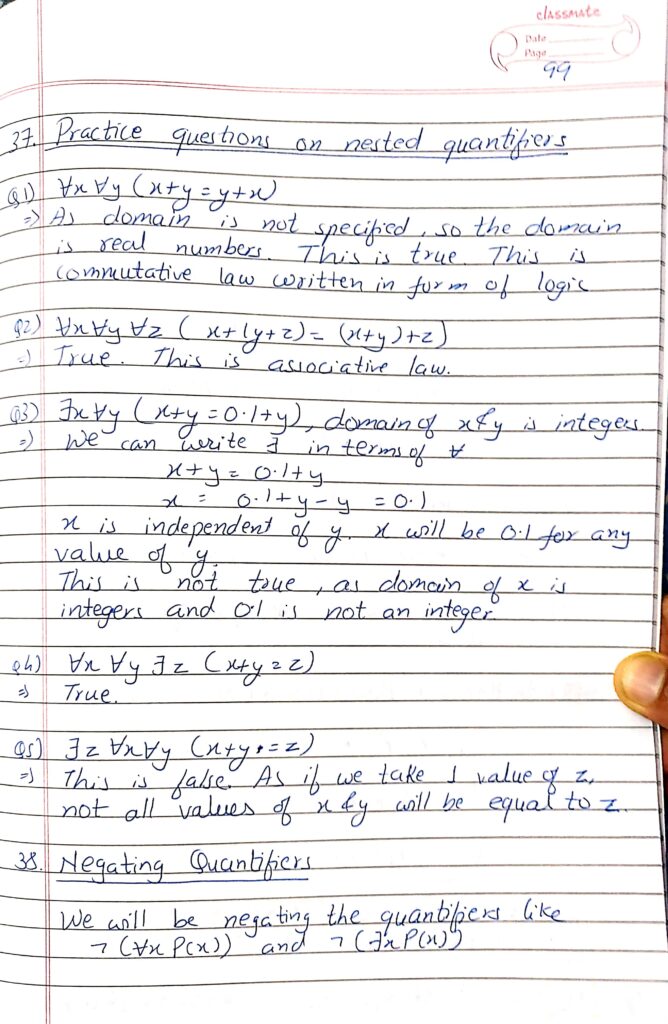 classmate
Date
Page
99
37. Practice questions on nested quantifiers
Q1) ∀x ∀y (x+y = y+x)
=> As domain is not specified, so the domain
is real numbers. This is true. This is
commutative law written in form of logic
Q2) ∀x ∀y ∀z ( x+(y+z) = (x+y)+z)
=) True. This is associative law.
Q3) ∃x ∀y (x+y = 0.1+y), domain of x & y is integers.
=) We can write ∃ in terms of ∀
x+y = 0.1+y
x = 0.1+y-y = 0.1
x is independent of y. x will be 0.1 for any
value of y.
This is not true, as domain of x is
integers and 0.1 is not an integer.
Q4) ∀x ∀y ∃z (x+y = z)
=) True.
Q5) ∃z ∀x ∀y (x+y = z)
=) This is false. As if we take 1 value of z,
not all values of x & y will be equal to z.
38. Negating Quantifiers
We will be negating the quantifiers like
¬ (∀x P(x)) and ¬ (∃x P(x))